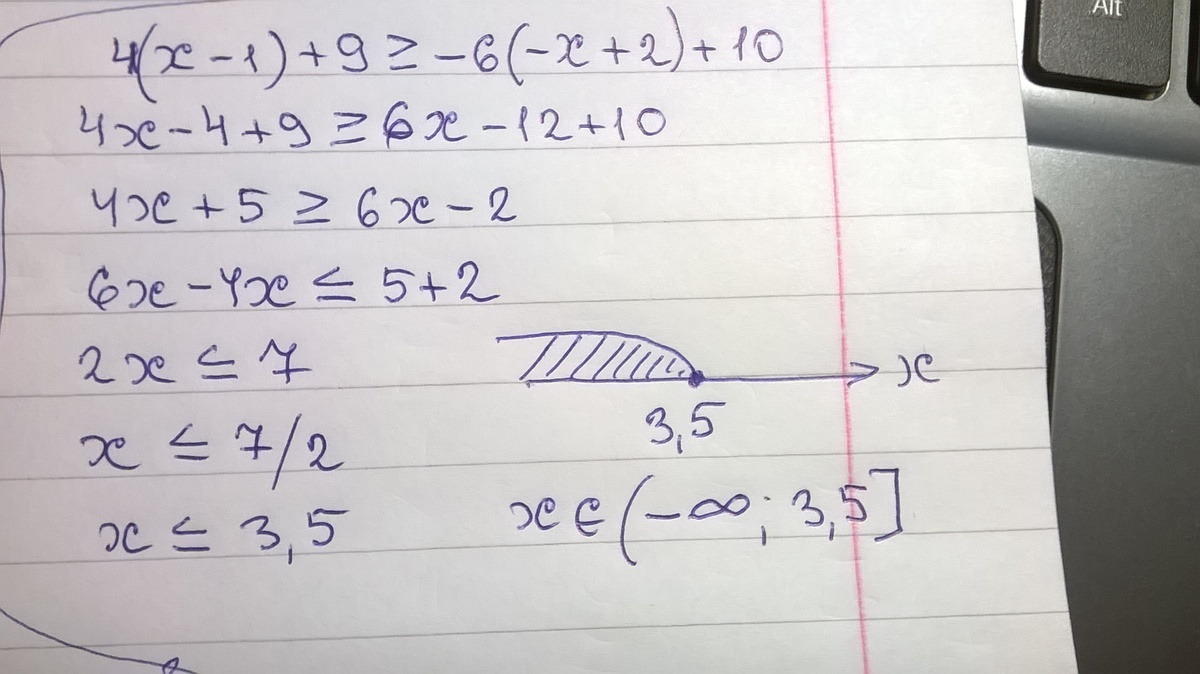 Alt
4(x-1)+9≥-6(-x+2)+10
4x-4+9≥6x-12+10
4x+5≥6x-2
6x-4x≤5+2
2x≤7
x
3,5
x≤7/2
x≤3,5
x∈(-∞; 3,5]